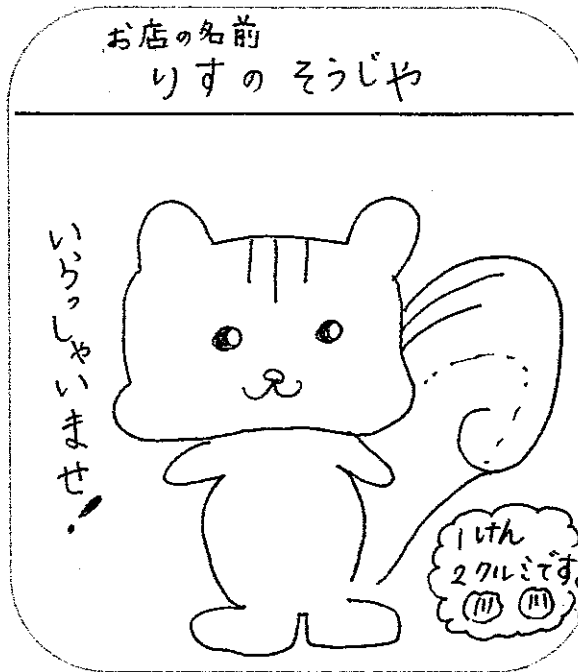 お店の名前
りすの そうじや
いらっしゃいませ!
1けん
2クルミです。